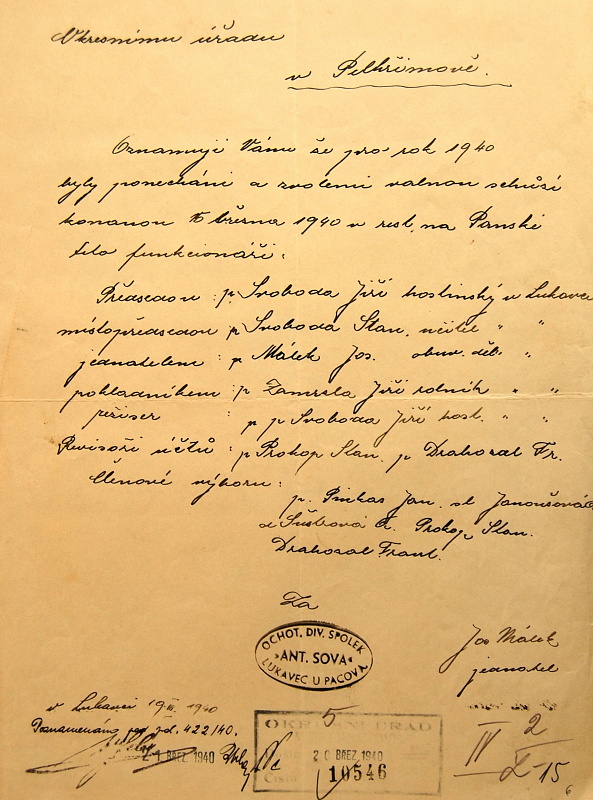 Okresnímu úřadu
v Pelhřimově.
Oznamuji Vám že pro rok 1940
byly ponecháni a zvoleni valnou schůsí
konanou března 1940 v rest. na Panské
tito funkcionáři:
Předsedou: p. Svoboda Jiří hostinský v Lukavci
místopředsedou p Svoboda Stan. učitel " "
jednatelem: p Málek Jos. obuv. děl. "
pokladníkem: p Zamrzla Jiří rolník " "
režiser : p p Svoboda Jiří host. " "
Revisoři účtů: p Prokop Stan. p Drahozal Fr.
Členové výboru:
p. Pinkas Jan. sl Janoušová
sl Šustrová A. Prokop Stan.
Drahozal Frant.
Za
OCHOT. DIV. SPOLEK
„ANT. SOVA“
LUKAVEC U PACOVA
Jos Málek
jednatel
v Lukavci 19 III. 1940
Poznamenáno pod zd. 422/40.
2 1 BŘEZ. 1940
5
OKRESNÍ ÚŘAD
2 0 BŘEZ. 1940
Číslo 10546
IV 2
15
6